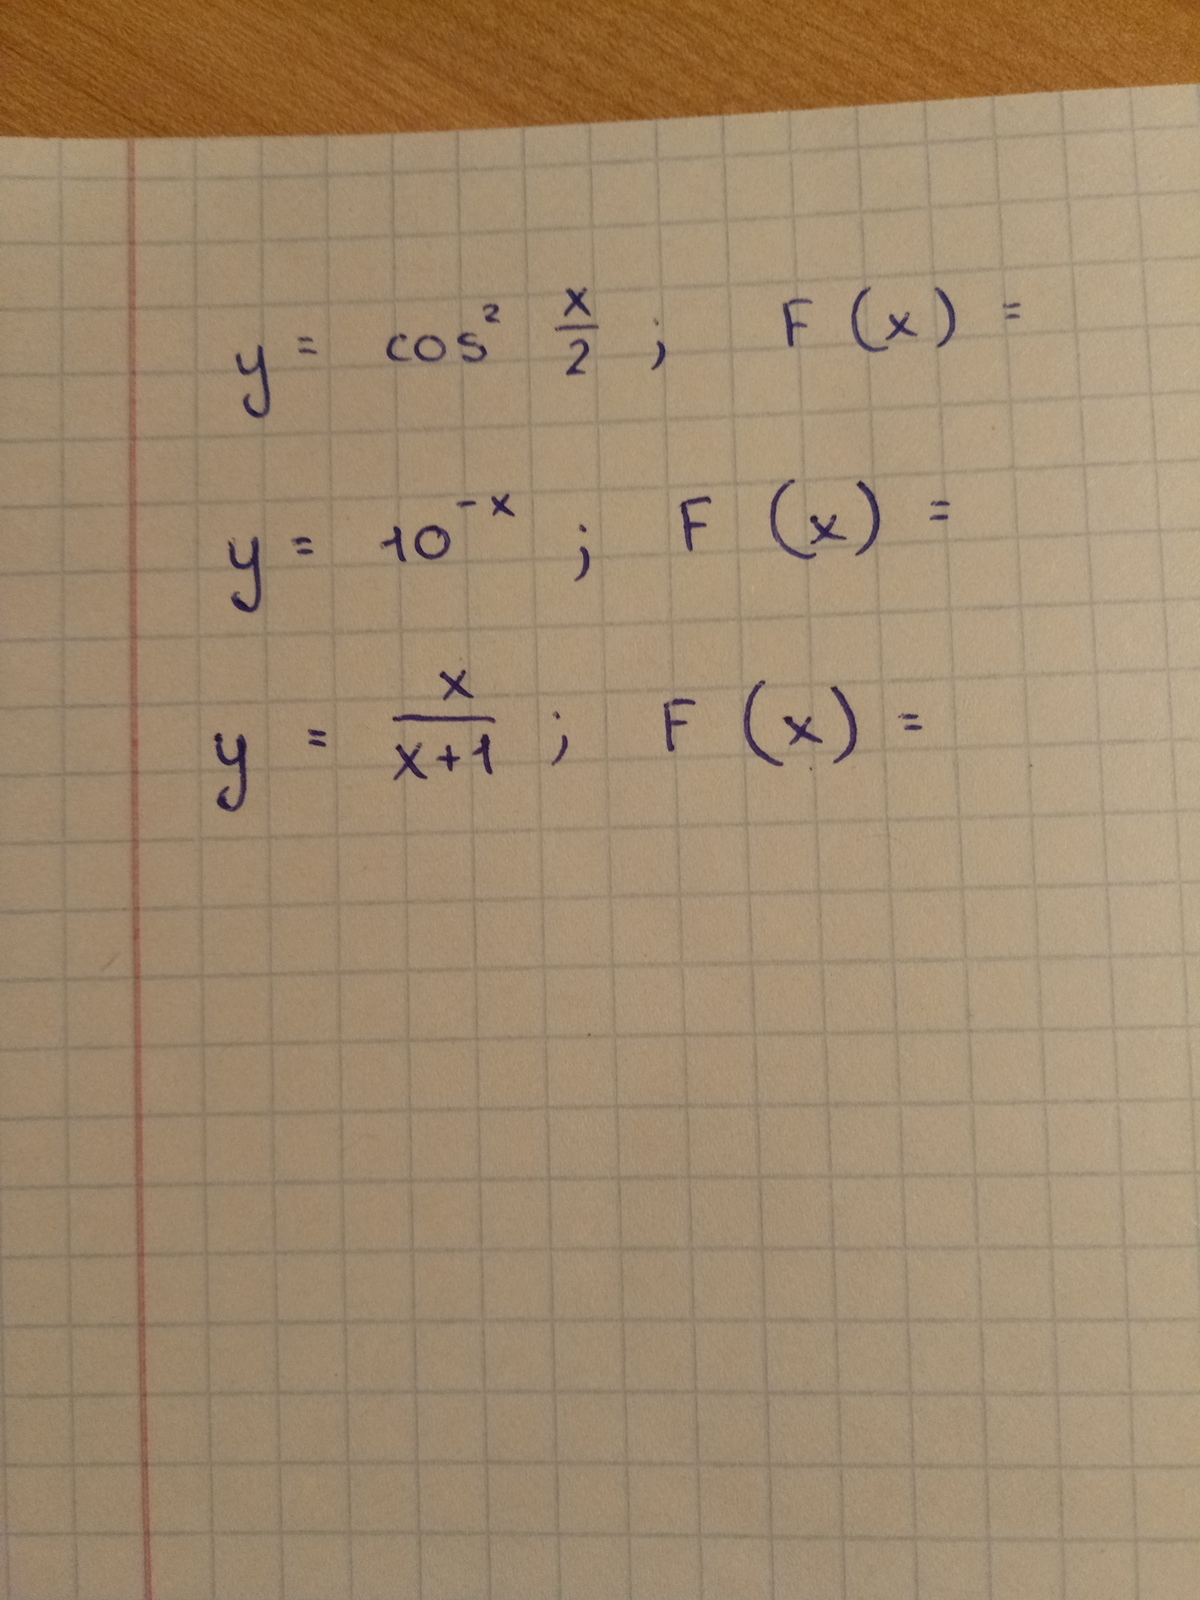 y = cos² x/2 ; F (x) =
y = 10⁻ˣ ; F (x) =
y = x/(x+1) ; F (x) =